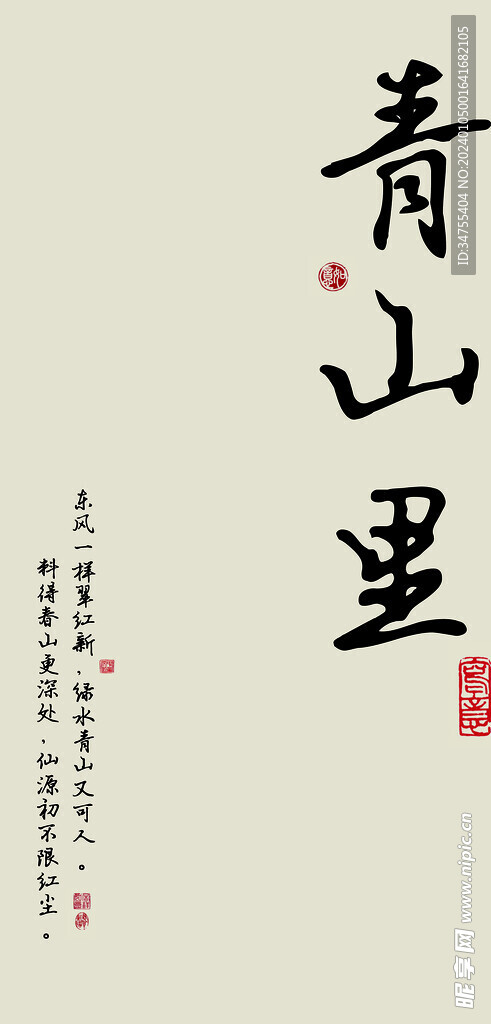 青山里
东风一样翠红新，绿水青山又可人。
料得春山更深处，仙源初不限红尘。
如意
ID:34755404 NO:20240105001641682105
昵享网 www.nipic.cn